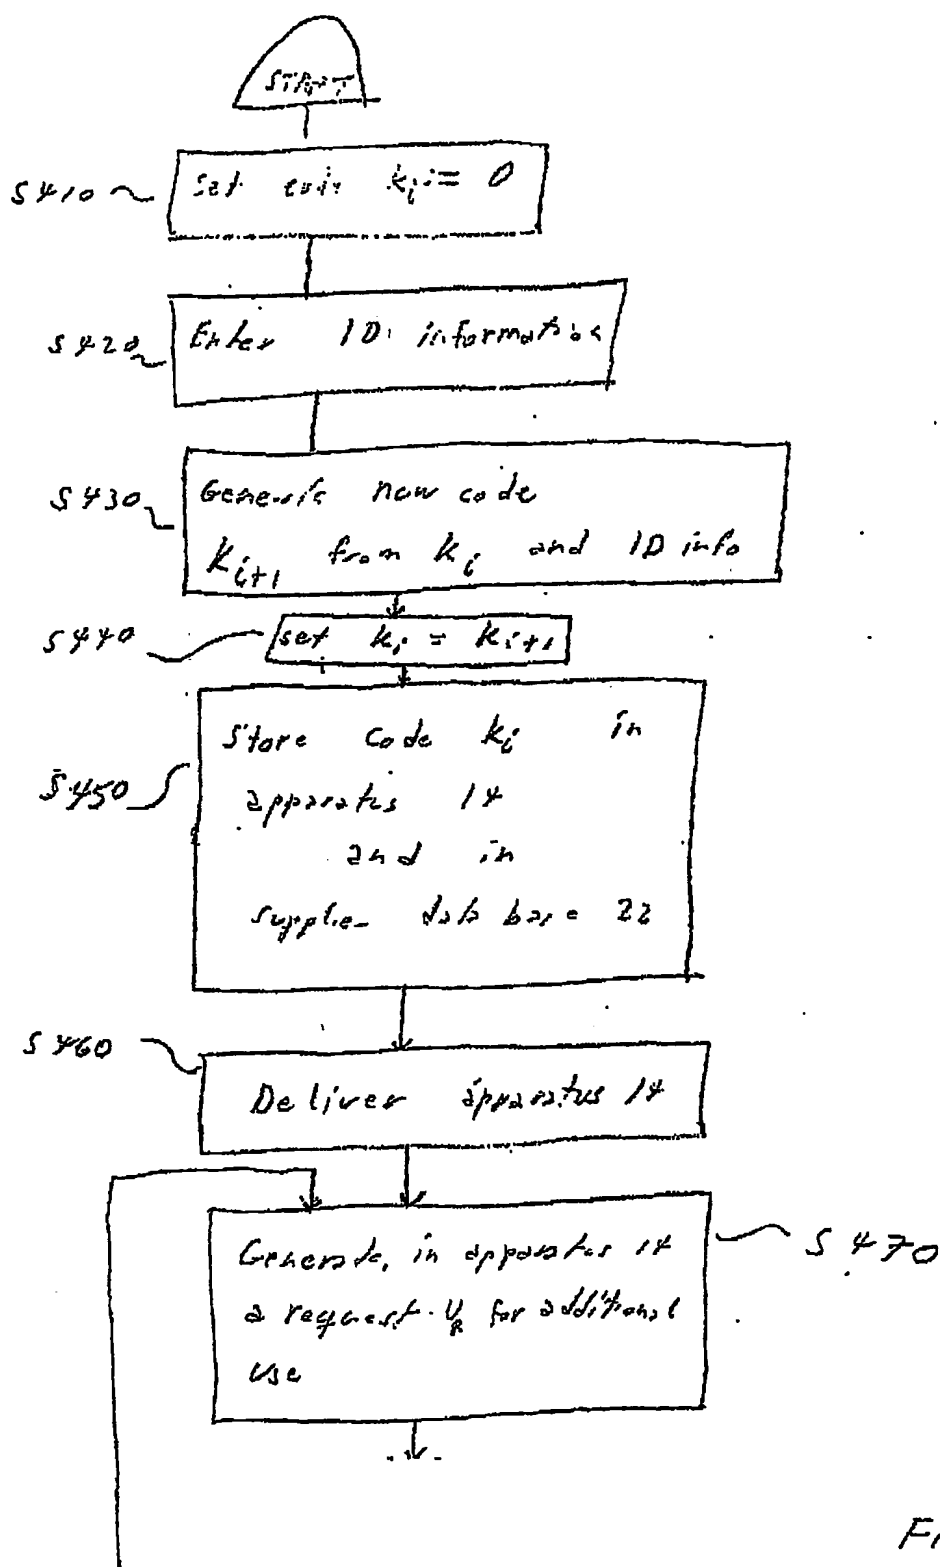 START
S410
Set code ki = 0
S420
Enter ID information
S430
Generate new code
Ki+1 from ki and ID info
S440
set ki = ki+1
S450
Store code ki in
apparatus 14
and in
supplier data base 22
S460
Deliver apparatus 14
S470
Generate, in apparatus 14
a request UR for additional
use